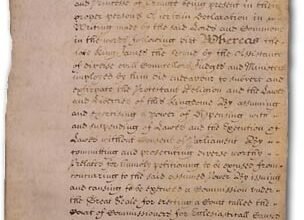 and Princesse of Orange being present in their
proper persons A certaine Declaration in
Writing made by the said Lords and Commons
in the words following viz Whereas the
late King James the second by the Assistance
of diverse evill Councellors Judges and Ministers
imployed by him did endeavour to subvert and
extirpate the Protestant Religion and the Lawes
and Liberties of this Kingdome By assuming
and exercising a power of Dispensing with
and Suspending of Lawes and the Execution of
Lawes without consent of Parliament By
committing and prosecuting diverse worthy
Prelates for humbly petitioning to be excused from
concurring to the said assumed power By issueing
and causing to be executed a Commission under
the Great Seale for erecting a Court called the
Court of Commissioners for Ecclesiasticall Causes